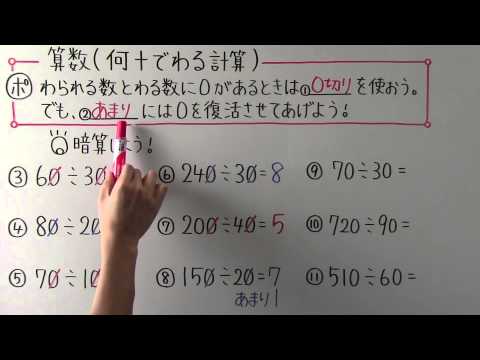 算数(何十でわる計算)
ポ わられる数とわる数に0があるときは①0切りを使おう。
でも、②あまりには0を復活させてあげよう!
暗算しよう!
③ 60÷30
⑥ 240÷30=8
⑨ 70÷30=
④ 80÷20
⑦ 200÷40=5
⑩ 720÷90=
⑤ 70÷10
⑧ 150÷20=7
⑪ 510÷60=
あまり1